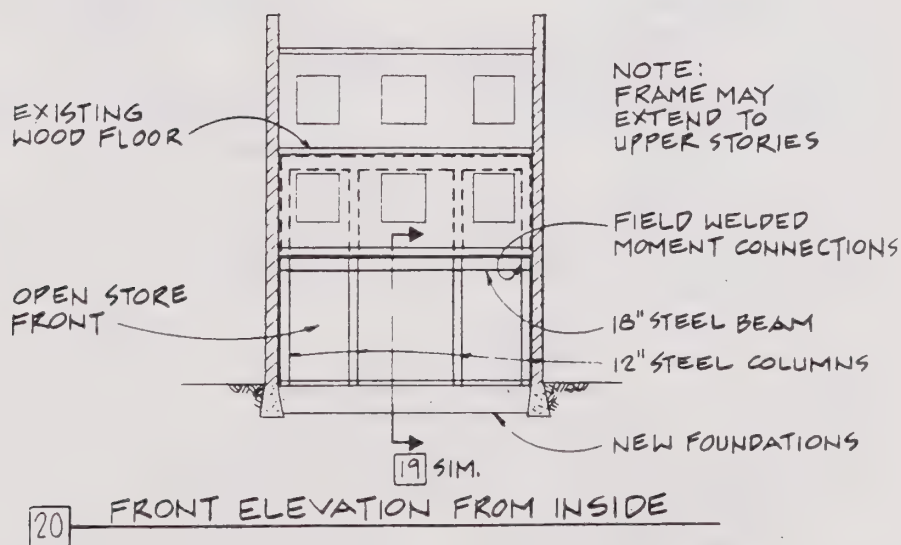 EXISTING
WOOD FLOOR
NOTE:
FRAME MAY
EXTEND TO
UPPER STORIES
FIELD WELDED
MOMENT CONNECTIONS
OPEN STORE
FRONT
18" STEEL BEAM
12" STEEL COLUMNS
NEW FOUNDATIONS
19 SIM.
20 FRONT ELEVATION FROM INSIDE